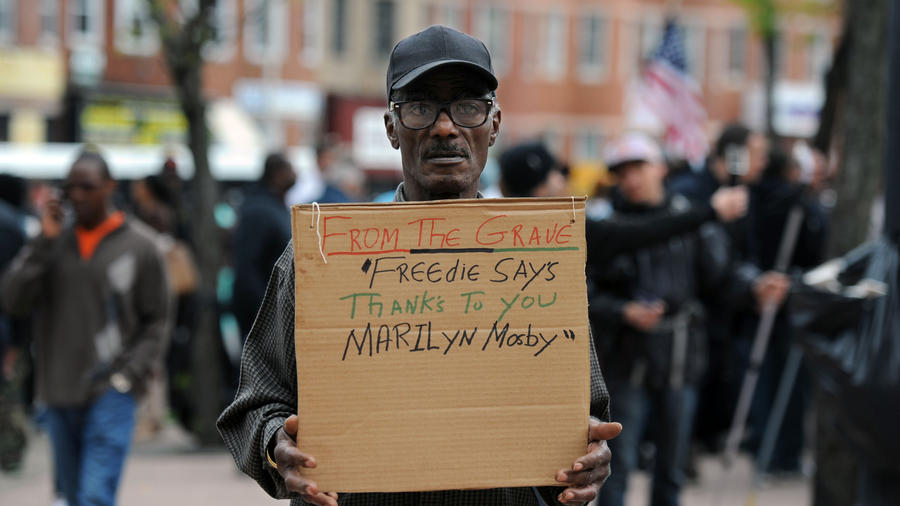 FROM THE GRAVE
"FREEDIE SAY'S
THANK'S TO YOU
MARILYN MOSBY"